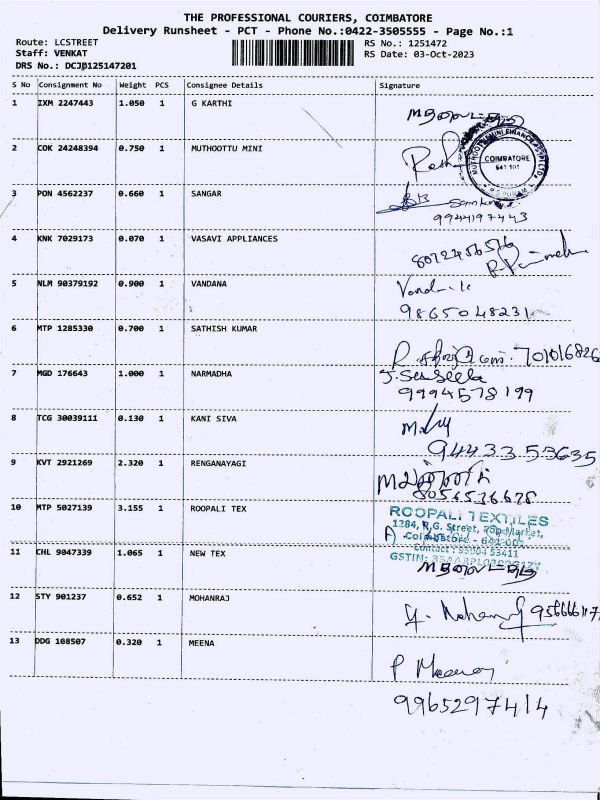 THE PROFESSIONAL COURIERS, COIMBATORE
Delivery Runsheet - PCT - Phone No.:0422-3505555 - Page No.:1
Route: LCSTREET RS No.: 1251472
Staff: VENKAT RS Date: 03-Oct-2023
DRS No.: DCJB125147201
S No Consignment No Weight PCS Consignee Details Signature
1 IXM 2247443 1.050 1 G KARTHI
2 COK 24248394 0.750 1 MUTHOOTTU MINI
COIMBATORE
641 101
3 PON 4562237 0.660 1 SANGAR
9944197443
4 KNK 7029173 0.070 1 VASAVI APPLIANCES
5 NLM 90379192 0.900 1 VANDANA
9865048231
6 MTP 1285330 0.700 1 SATHISH KUMAR
7 MGD 176643 1.000 1 NARMADHA
J. Suseela
9994578199
8 TCG 30039111 0.130 1 KANI SIVA
9443353635
9 KVT 2921269 2.320 1 RENGANAYAGI
8056536678
10 MTP 5027139 3.155 1 ROOPALI TEX
ROOPALI TEXTILES
1284, R.G. Street, Top Market,
Coimbatore - 641 001
11 CHL 9047339 1.065 1 NEW TEX
12 STY 901237 0.652 1 MOHANRAJ
13 DDG 108507 0.320 1 MEENA
P Meena
9965297414